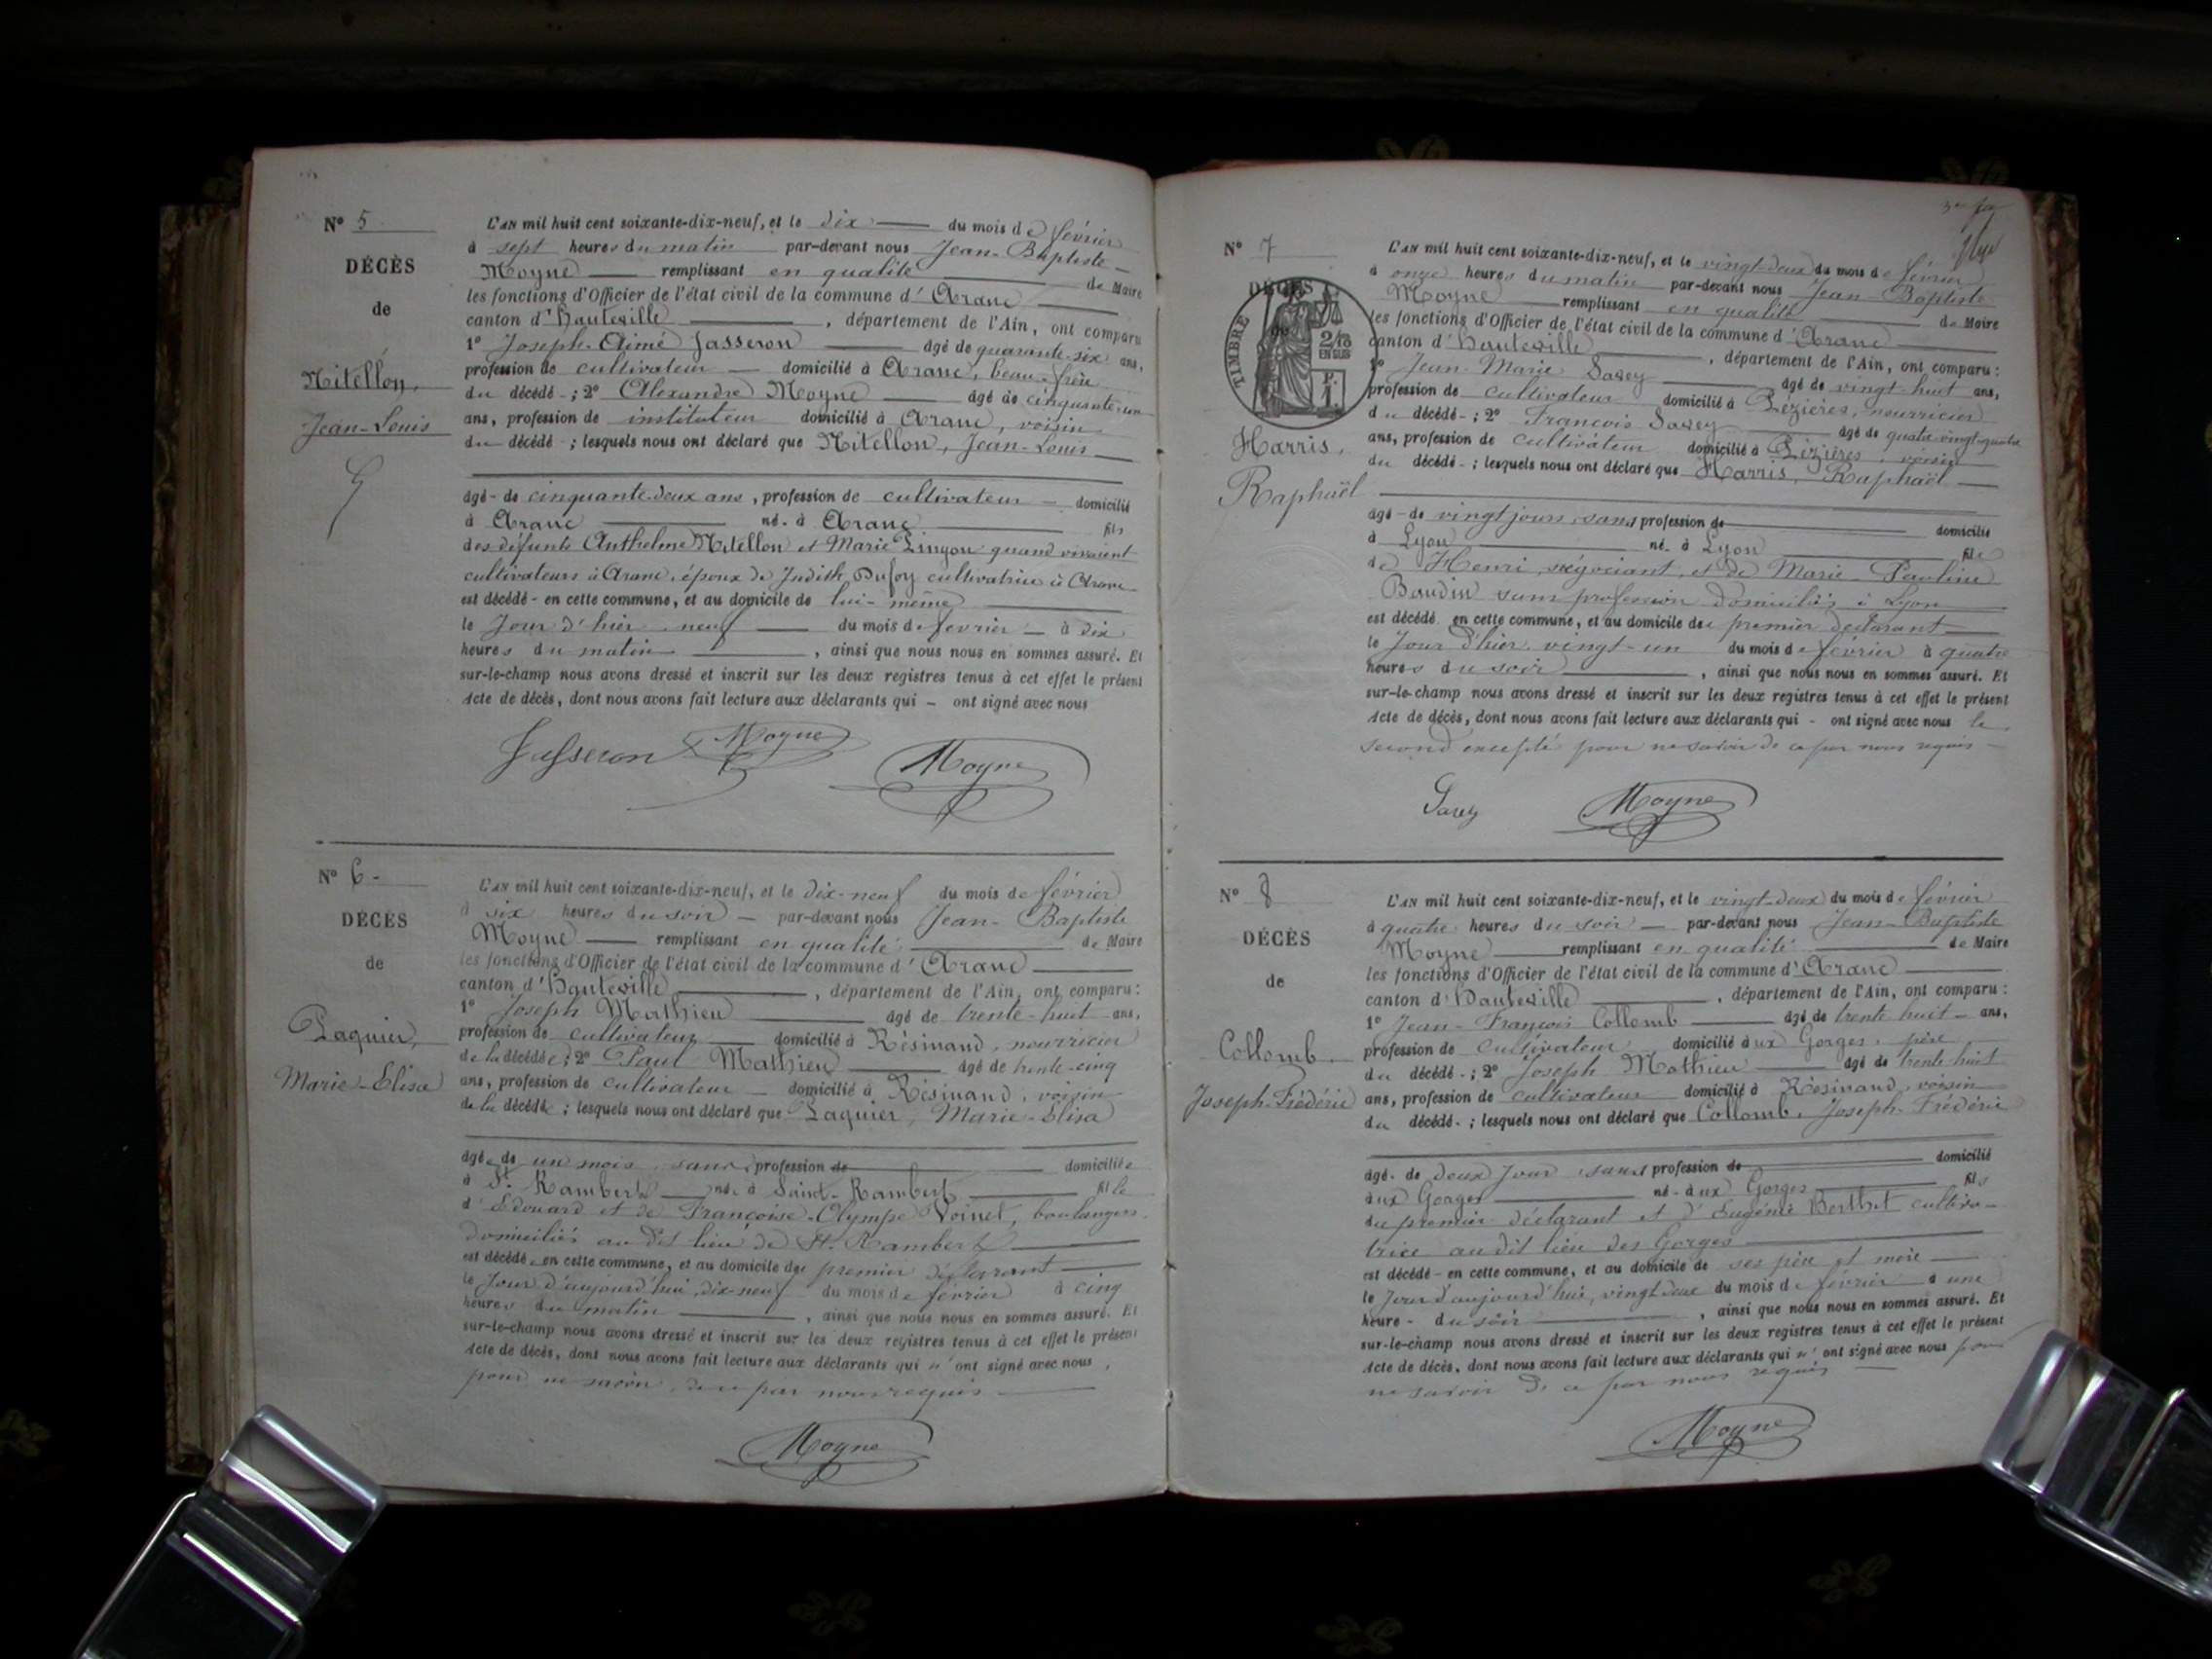 N° 5
DÉCÈS
de
Nitellon,
Jean-Louis
L'AN mil huit cent soixante-dix-neuf, et le dix du mois de février
à sept heures du matin par-devant nous Jean-Baptiste
Moyne remplissant en qualité de Maire
les fonctions d'Officier de l'état civil de la commune d'Aranc
canton d'Hauteville, département de l'Ain, ont comparu
1° Joseph-Aimé Jasseron âgé de quarante-six ans,
profession de cultivateur domicilié à Aranc, beau-frère
du décédé ; 2° Alexandre Moyne âgé de cinquante-un
ans, profession de instituteur domicilié à Aranc, voisin
du décédé ; lesquels nous ont déclaré que Nitellon, Jean-Louis
âgé de cinquante-deux ans, profession de cultivateur domicilié
à Aranc né à Aranc fils
des défunts Anthelme Nitellon et Marie Pingon quand vivaient
cultivateurs à Aranc, époux de Judith Dufoy cultivatrice à Aranc
est décédé en cette commune, et au domicile de lui-même
le Jour d'hier neuf du mois de février à dix
heures du matin, ainsi que nous nous en sommes assuré. Et
sur-le-champ nous avons dressé et inscrit sur les deux registres tenus à cet effet le présent
Acte de décès, dont nous avons fait lecture aux déclarants qui ont signé avec nous
Jasseron Moyne Moyne
N° 6
DÉCÈS
de
Paquier,
Marie-Elisa
L'AN mil huit cent soixante-dix-neuf, et le dix-neuf du mois de février
à six heures du soir par-devant nous Jean-Baptiste
Moyne remplissant en qualité de Maire
les fonctions d'Officier de l'état civil de la commune d'Aranc
canton d'Hauteville, département de l'Ain, ont comparu :
1° Joseph Mathieu âgé de trente-huit ans,
profession de cultivateur domicilié à Résinand, nourricier
de la décédée ; 2° Paul Mathieu âgé de trente-cinq
ans, profession de cultivateur domicilié à Résinand, voisin
de la décédée ; lesquels nous ont déclaré que Paquier, Marie-Elisa
âgée de un mois, sans profession de domiciliée
à St Rambert née à Saint-Rambert fille
d'Edouard et de Françoise-Olympe Voinet, boulangers
domiciliés au dit lieu de St. Rambert
est décédée en cette commune, et au domicile du premier déclarant
le Jour d'aujourd'hui dix-neuf du mois de février à cinq
heures du matin, ainsi que nous nous en sommes assuré. Et
sur-le-champ nous avons dressé et inscrit sur les deux registres tenus à cet effet le présent
Acte de décès, dont nous avons fait lecture aux déclarants qui n'ont signé avec nous,
pour ne savoir, de ce par nous requis
Moyne
N° 7
DÉCÈS
TIMBRE
2/10
EN SUS
Harris,
Raphaël
L'AN mil huit cent soixante-dix-neuf, et le vingt-deux du mois de février
à onze heures du matin par-devant nous Jean-Baptiste
Moyne remplissant en qualité de Maire
les fonctions d'Officier de l'état civil de la commune d'Aranc
canton d'Hauteville, département de l'Ain, ont comparu :
1° Jean-Marie Savey âgé de vingt-huit ans,
profession de cultivateur domicilié à Pézières, nourricier
du décédé ; 2° François Savey âgé de quatre-vingt-quatre
ans, profession de cultivateur domicilié à Pézières, voisin
du décédé ; lesquels nous ont déclaré que Harris, Raphaël
âgé de vingt jours, sans profession de domicilié
à Lyon né à Lyon fils
de Henri, négociant, et de Marie-Pauline
Baudin sans profession domiciliés à Lyon
est décédé en cette commune, et au domicile du premier déclarant
le Jour d'hier vingt-un du mois de février à quatre
heures du soir, ainsi que nous nous en sommes assuré. Et
sur-le-champ nous avons dressé et inscrit sur les deux registres tenus à cet effet le présent
Acte de décès, dont nous avons fait lecture aux déclarants qui ont signé avec nous le
second excepté pour ne savoir de ce par nous requis
Savey Moyne
N° 8
DÉCÈS
de
Collomb
Joseph-Frédéric
L'AN mil huit cent soixante-dix-neuf, et le vingt-deux du mois de février
à quatre heures du soir par-devant nous Jean-Baptiste
Moyne remplissant en qualité de Maire
les fonctions d'Officier de l'état civil de la commune d'Aranc
canton d'Hauteville, département de l'Ain, ont comparu :
1° Jean-François Collomb âgé de trente huit ans,
profession de cultivateur domicilié aux Gorges, père
du décédé ; 2° Joseph Mathieu âgé de trente huit
ans, profession de cultivateur domicilié à Résinand, voisin
du décédé ; lesquels nous ont déclaré que Collomb, Joseph-Frédéric
âgé de deux jour, sans profession de domicilié
aux Gorges né aux Gorges fils
du premier déclarant et d'Eugénie Berthet cultiva-
trice au dit lieu des Gorges
est décédé en cette commune, et au domicile de ses père et mère
le Jour d'aujourd'hui, vingt deux du mois de février à une
heure du soir, ainsi que nous nous en sommes assuré. Et
sur-le-champ nous avons dressé et inscrit sur les deux registres tenus à cet effet le présent
Acte de décès, dont nous avons fait lecture aux déclarants qui n'ont signé avec nous pour
ne savoir de ce par nous requis
Moyne